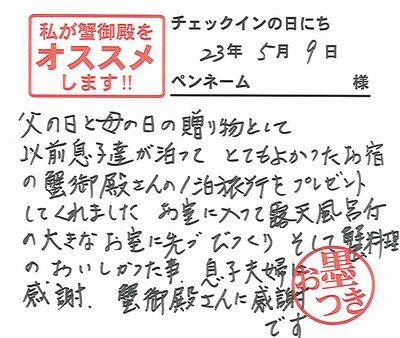 私が蟹御殿を
オススメ
します!!
チェックインの日にち
23年 5月 9日
ペンネーム 様
父の日と母の日の贈り物として
以前息子達が泊って とてもよかったお宿
の蟹御殿さんの1泊旅行をプレゼント
してくれました お室に入って露天風呂付
の大きなお室に先づびっくり そして蟹料理
のおいしかった事、息子夫婦に
感謝、蟹御殿さんに感謝
です
お墨つき